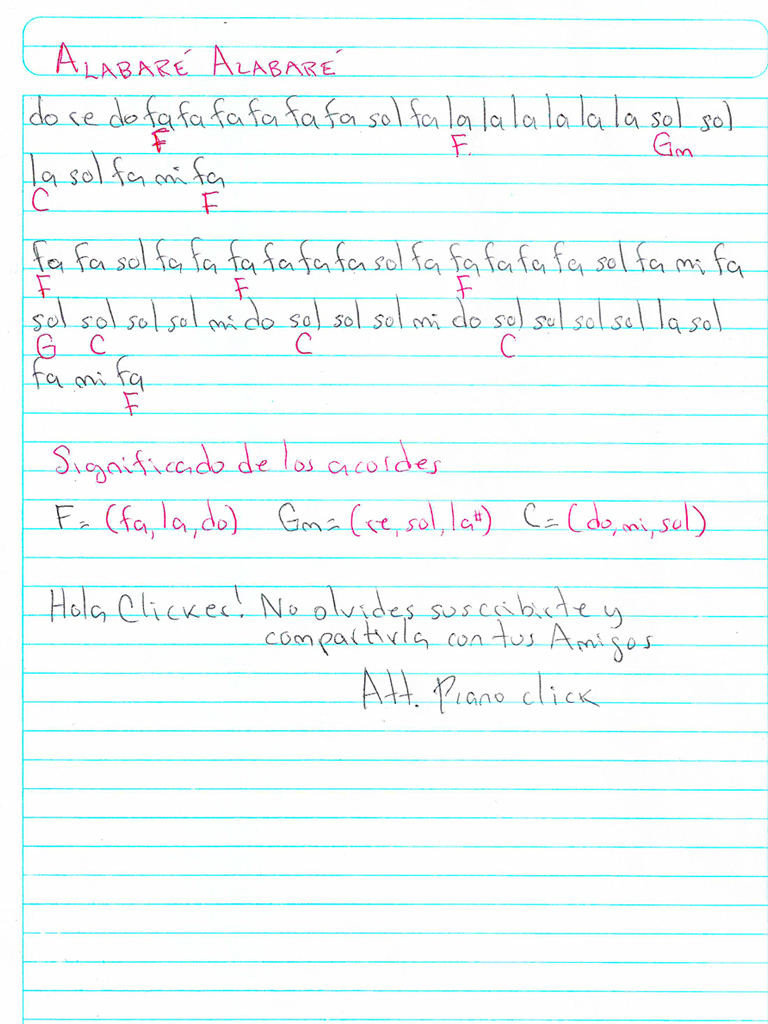 ALABARÉ ALABARÉ
do re do fa fa fa fa fa fa sol fa la la la la la la sol sol
F F. Gm
la sol fa mi fa
C F
fa fa sol fa fa fa fa fa fa sol fa fa fa fa fa sol fa mi fa
F F F
sol sol sol sol mi do sol sol sol mi do sol sol sol sol la sol
G C C C
fa mi fa
F
Significado de los acordes
F= (fa, la, do) Gm= (re, sol, la#) C= (do, mi, sol)
Hola Clicker! No olvides suscribirte y
compartirla con tus Amigos
Att. Piano click